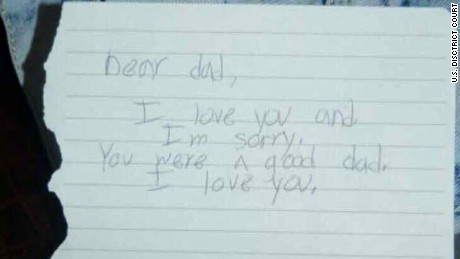 Dear dad,
I love you and
I'm sorry.
You were a good dad.
I love you.
U.S. DISCTRICT COURT